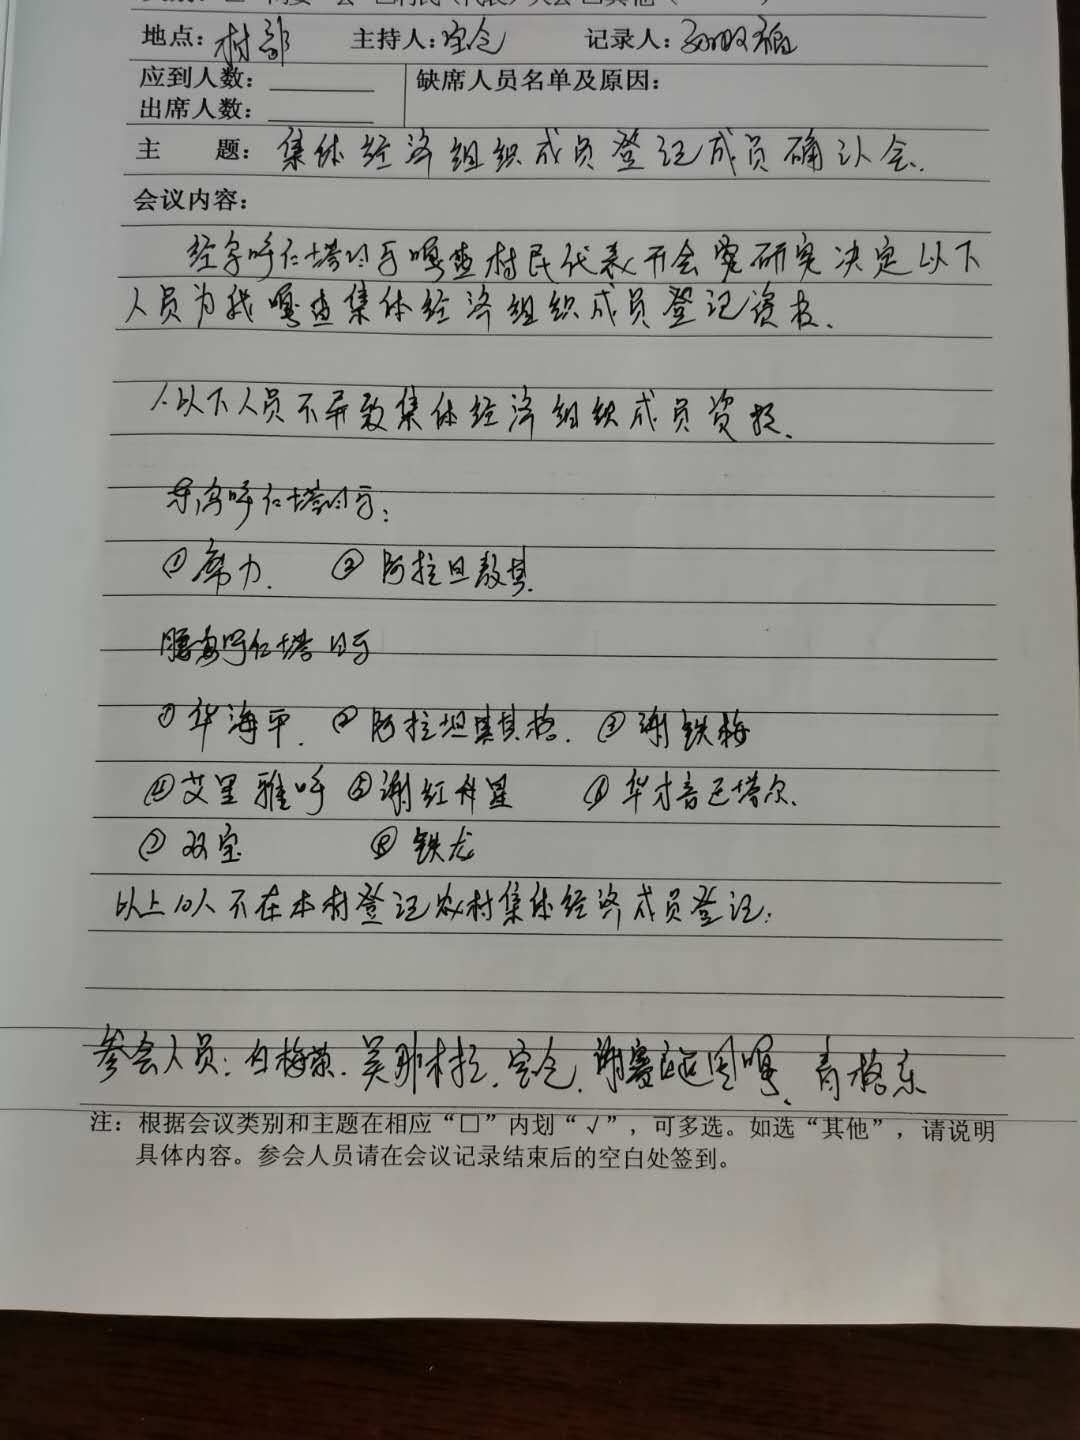 地点：村部 主持人：宝仓 记录人：
应到人数： 缺席人员名单及原因：
出席人数：
主 题：集体经济组织成员登记成员确认会.
会议内容：
经 呼仁塔 嘎查村民代表开会 研究决定以下
人员为我嘎查集体经济组织成员登记资 .
1.以下人员不 集体经济组织成员资 .
呼仁塔 ：
① 力. ② 阿拉旦敖其.
腰 呼仁塔
① 华海平. ② 阿拉坦其其格. ③ 谢铁梅
④ 艾里雅呼 ⑤ 谢红 星 ⑥ 华才音巴塔尔.
⑦ 双宝 ⑧ 铁龙
以上10人不在本村登记农村集体经济成员登记；
参会人员：白梅荣. 吴那木拉. 宝仓. 谢赛 图嘎、青格乐
注：根据会议类别和主题在相应“□”内划“√”，可多选。如选“其他”，请说明
具体内容。参会人员请在会议记录结束后的空白处签到。